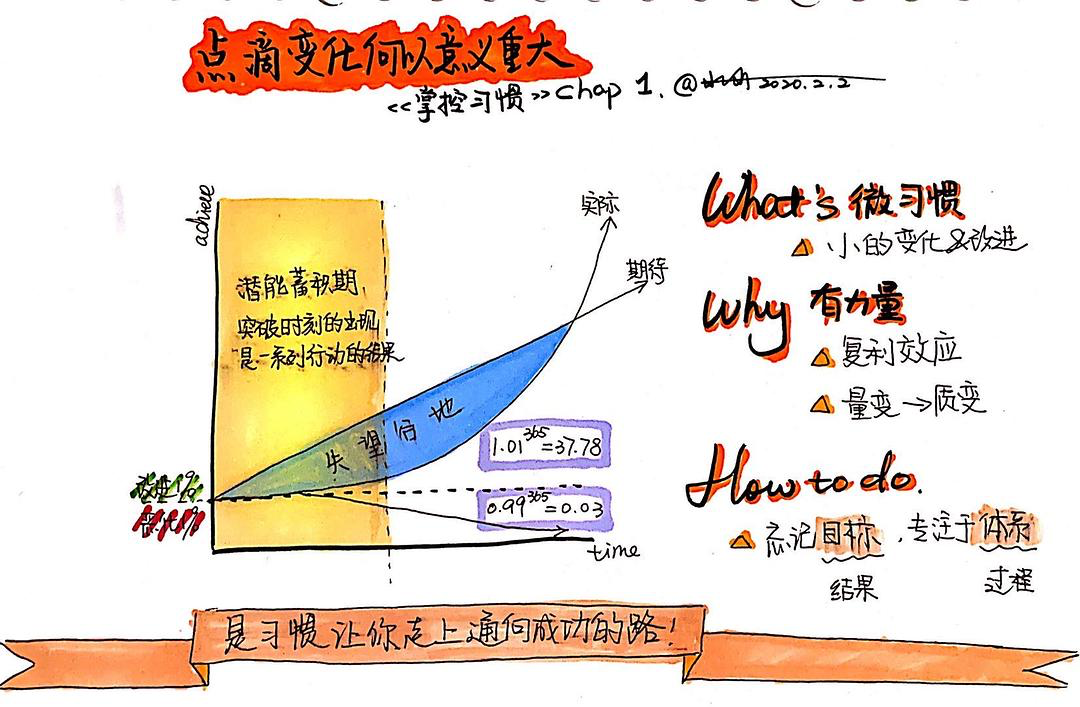 点滴变化何以意义重大
<<掌控习惯>> Chap 1. @ 2020.2.2
achieve
潜能蓄积期,
突破时刻的出现
是一系列行动的结果
实际
期待
失望谷地
1.01^365=37.78
0.99^365=0.03
改进1%
恶化1%
time
What's 微习惯
小的变化&改进
Why 有力量
复利效应
量变→质变
How to do.
忘记目标,专注于体系
结果 过程
是习惯让你走上通向成功的路!